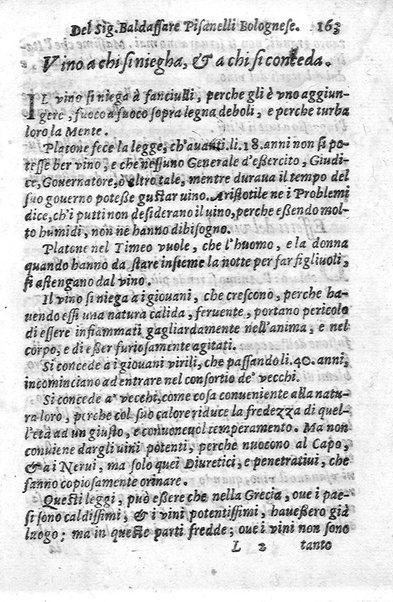 Del Sig. Baldassare Pisanelli Bolognese. 163
Vino a chi si niegha, & a chi si conceda.
IL vino si niega à fanciulli, perche gli è vno aggiun-
gere, fuoco a fuoco sopra legna deboli, e perche turba
loro la Mente.
Platone fece la legge, ch'auanti.li.18.anni non si po-
tesse ber vino, e che nessuno Generale d'essercito, Giudi-
ce, Gouernatore, ò altro tale, mentre duraua il tempo del
suo gouerno potesse gustar uino. Aristotile ne i Problemi
dice, ch'i putti non desiderano il uino, perche essendo mol-
to humidi, non ne hanno dibisogno.
Platone nel Timeo vuole, che l'huomo, e la donna
quando hanno da stare insieme la notte per far figliuoli,
si astengano dal vino.
Il vino si niega a i giouani, che crescono, perche ha-
uendo essi una natura calida, feruente, portano pericolo
di essere infiammati gagliardamente nell'anima, e nel
corpo, e di esser furiosamente agitati.
Si concede a i giouani virili, che passando li.40.anni,
incominciano ad entrare nel consortio de' vecchi.
Si concede a' vecchi, come cosa conueniente alla natu-
ra loro, perche col suo calore riduce la fredezza di quel-
l'età ad un giusto, e conueneuol temperamento. Ma non
conuiene dargli uini potenti, perche nuocono al Capo,
& a i Nerui, ma solo quei Diuretici, e penetratiui, che
fanno copiosamente orinare.
Queste leggi, può essere che nella Grecia, oue i pae-
si sono caldissimi, & i vini potentissimi, hauessero già
luogo; ma in queste parti fredde; oue i vini non sono
L 2 tanto